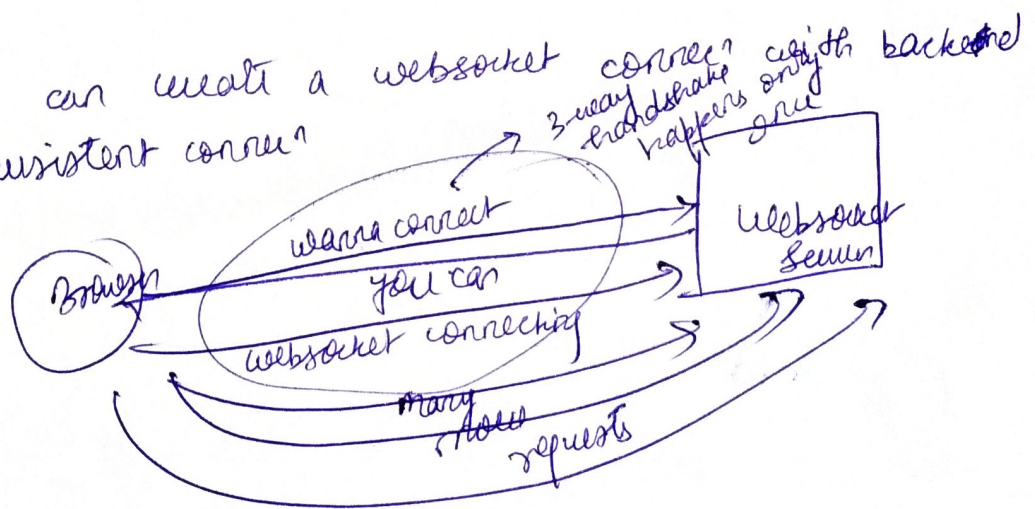 can create a websocket connecⁿ with backend
usistent connecⁿ
3-way
handshake
happens only
once
wanna connect
you can
websocket connecting
Browser
Websocket
Server
many
more
requests